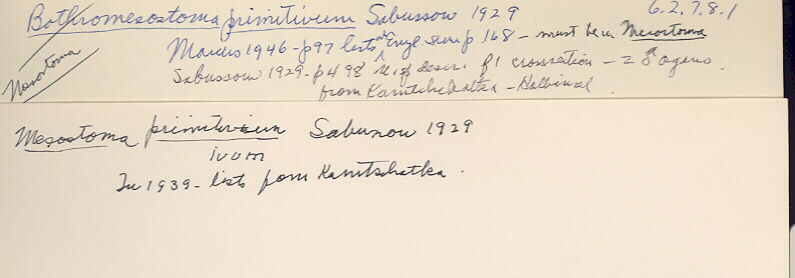 Bothromesostoma primitivum Sabussow 1929
6.2.7.8.1
Mesostoma
Marcus 1946 - p97 lists p 168 - must be in Mesostoma
Sabussow 1929 - p498 descr. f1 crossection - = ♂ organs
from Kamtschatka - Halbinsel
Mesostoma primitivum Sabussow 1929
ivum
In 1939 - lists from Kamtschatka.